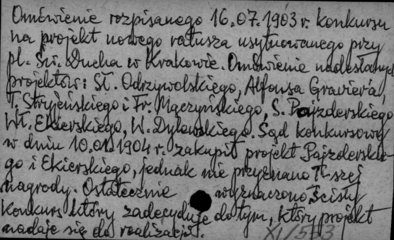 Omówienie rozpisanego 16.07.1903 r. konkursu
na projekt nowego ratusza usytuowanego przy
pl. Św. Ducha w Krakowie. Omówienie nadesłanych
projektów: St. Odrzywolskiego, Alfonsa Graviera,
T. Stryjeńskiego i Fr. Mączyńskiego, S. Pajzderskiego
Wł. Ekierskiego, W. Dylewskiego. Sąd konkursowy
w dniu 10.01.1904 r. zakupił projekt Pajzderskie-
go i Ekierskiego, jednak nie przyznano II-szej
nagrody. Ostatecznie wyznaczono ścisły
konkurs który zadecyduje do tym, który projekt
nadaje się do realizacji.